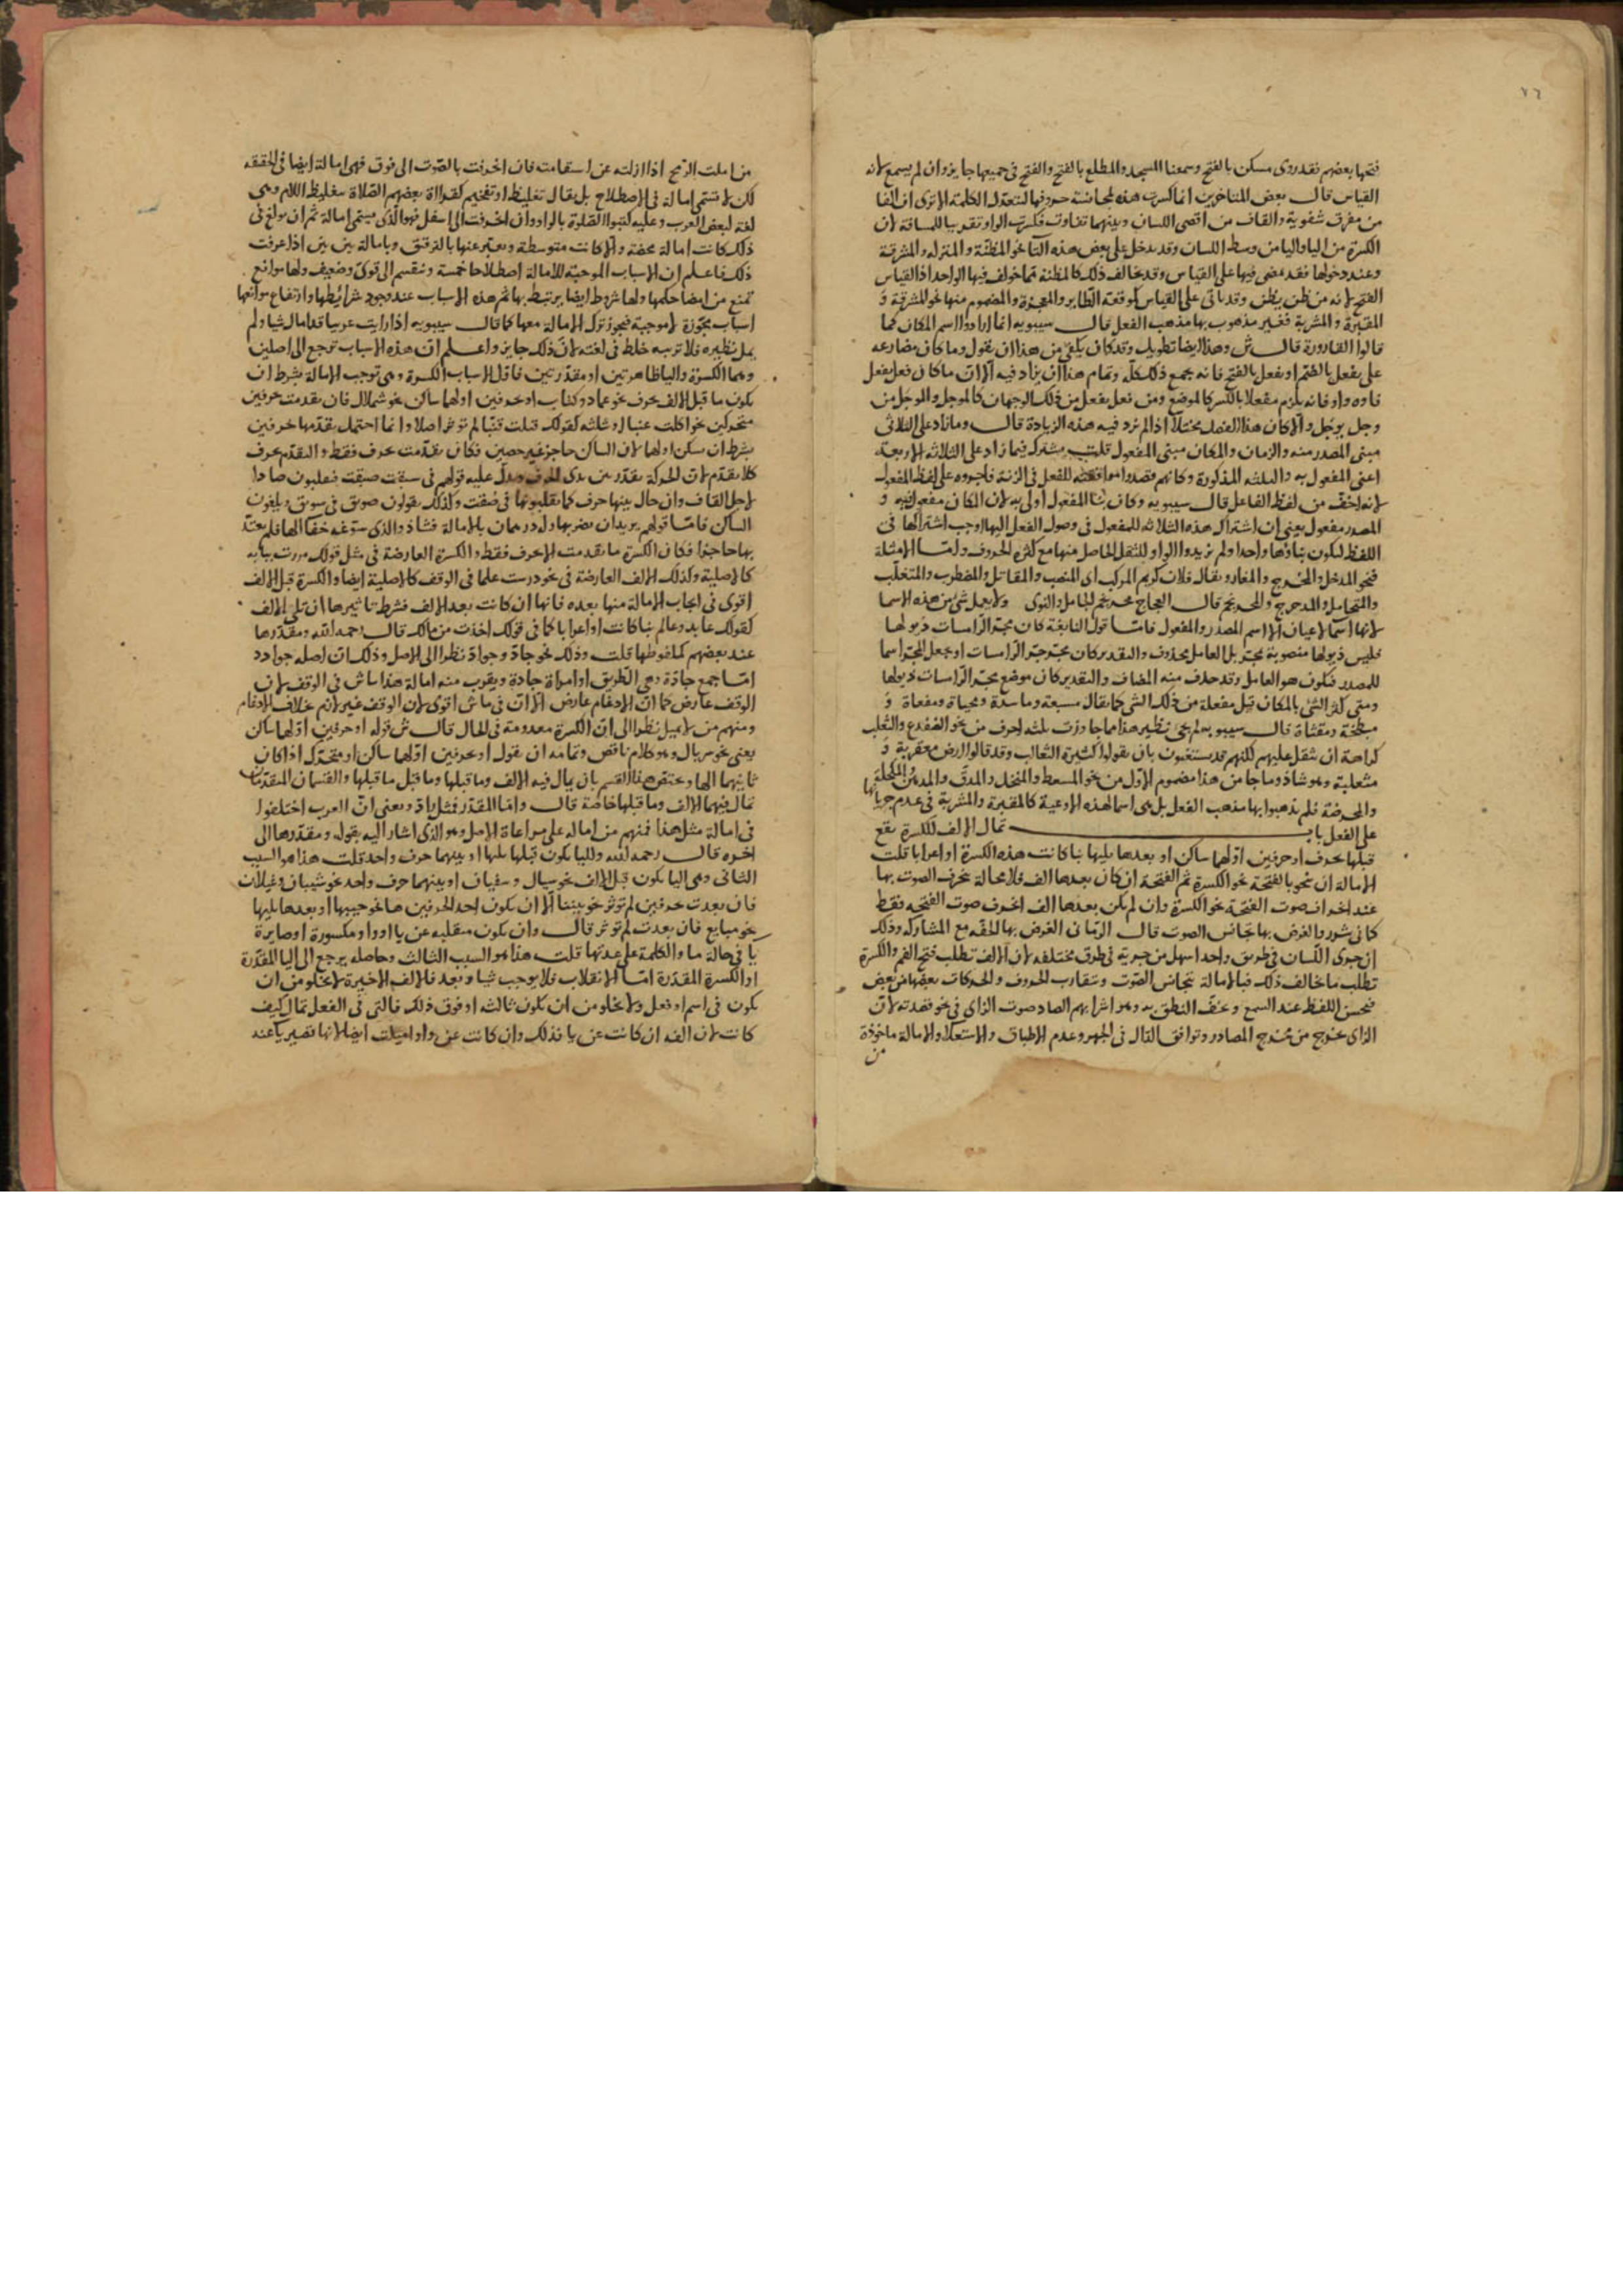 ٧٦
فتحها بعضهم فقد روى مسكن بالفتح وسمعنا المسجد والمطلع بالفتح والفتح في جميعها جايز وان لم يسمع لانه
القياس قال بعض المتاخرين انما كسرت هذه لمجانسة حروفها لتعتدل الكلمة الا ترى ان الفا
من مفرق شفوية والقاف من اقصى اللسان وبينهما تفاوت فكسرت الراو تقريبا للمسافة لان
الكسرة من اليا واليا من وسط اللسان وقد يدخل على بعض هذه التا نحو المظنة والمنزله والمشرقة
وعند دخولها فقد مضى فيها على القياس وقد يخالف ذلك كالمظنة مما خولف فيها الواحد اذ القياس
الفتح لانه من ظن يظن وقد ياتى على القياس كموقعة الطاير والمعجزة والمضموم منها نحو المشرقة و
المقبرة والمشربة فغير مذهوب بها مذهب الفعل قال سيبويه انما ارادوا اسم المكان كما
قالوا القارورة قال ش وهذا ايضا تطويل وقد كان يكفى من هذا ان يقول وما كان مضارعه
على يفعل بالضم او يفعل بالفتح فانه يجمع ذلك كله وتمام هذا ان يزاد فيه الا ان ما كان فعل يفعل
فاوه واو فانه يلزم مفعلا بالكسر كالموضع ومن فعل يفعل من ذلك الوجهان كالموجل والموجل من
وجل يوجل والا كان هذا الفصل مختلا اذ لم يزد فيه هذه الزيادة قال وما زاد على الثلاثى
مبنى المصدر منه والزمان والمكان مبنى المفعول قلت يشترك فيما زاد على الثلاثة الاربعة
اعنى المفعول به والثلثه المذكورة وكانهم قصدوا موافقته للفعل فى الزنة فاجروه على لفظ المفعول
لانه اخف من لفظ الفاعل قال سيبويه وكان بنا المفعول اولى به لان المكان مفعول فيه و
المصدر مفعول يعنى ان اشتراك هذه الثلاثه للمفعول فى وصول الفعل اليها اوجب اشتراكها فى
اللفظ ليكون بناؤها واحدا ولم يزيدوا الواو للثقل الحاصل منها مع كثرة الحروف ولها الامثلة
فنحو المدخل والمخرج والمغار ويقال فلان كريم المركب اى المنصب والمقاتل والمضطرب والمتقلب
والمتحامل والمدحرج والمحرنجم قال العجاج محرنجم الجامل والنوى ولا يعمل شى من هذه الاسما
لانها اسما لاعيان الا اسم المصدر والمفعول فاما قول النابغة كان مجر الرامسات ذيولها
فليس ذيولها منصوبة بمجر بل العامل محذوف والتقدير كان مجر جر الرامسات او يجعل المجر اسما
للمصدر فيكون هو العامل وقد حذف منه المضاف والتقدير كان موضع مجر الرامسات ذيولها
ومتى كثر الشى بالمكان قيل مفعلة من ذلك الشى كما يقال مسبعة وماسدة ومحياة ومفعاة و
مبطخة ومقثاة قال سيبويه ولم يجى نظير هذا مما جاوزت ثلثه احرف من نحو الضفدع والثعلب
كراهة ان يثقل عليهم لكنهم قد يستغنون بان يقولوا كثيرة الثعالب وقد قالوا ارض معقربة و
مثعلبة وهو شاذ وما جا من هذا مضموم الاول من نحو المسعط والمنخل والمدق والمدهن والمكحلة
والمحرضة فلم يذهبوا بها مذهب الفعل بل هى اسما لهذه الاوعية كالمقبرة والمشربة فى عدم جريانها
على الفعل باب تمال الالف لكسرة تقع
قبلها بحرف او حرفين اولهما ساكن او بعدها يليها بنا كانت هذه الكسرة او اعرابا قلت
الامالة ان تنحو بالفتحة نحو الكسرة ثم الفتحة ان كان بعدها الف فلا محالة ينحرف الصوت بها
عند انحراف صوت الفتحة نحو الكسرة وان لم يكن بعدها الف انحرف صوت الفتحه فقط
كما فى شرر والغرض بها تجانس الصوت قال الرمانى الغرض بها الخفه مع المشاركه وذلك
ان جرى اللسان فى طريق واحد اسهل من جريه فى طرق مختلفه لان الالف تطلب فتح الفم والكسرة
تطلب ما خالف ذلك فبالامالة تتجانس الصوت وتتقارب الحروف والحركات بعضها من بعض
فيحسن اللفظ عند السمع ويخف النطق به وهو اشرابهم الصاد صوت الزاى فى نحو فصدته لان
الزاى يخرج من مخرج الصاد وتوافق الدال فى الجهر وعدم الاطباق والاستعلا والامالة ماخوذة
من
من املت الرمح اذا ازلته عن استقامته فان انحرفت بالصوت الى فوق فهى امالة ايضا فى الحقيقه
لكن لا تسمى امالة فى الاصطلاح بل يقال تغليظ او تفخيم كقراءة بعضهم الصلاة بتغليظ اللام وهى
لغة لبعض العرب وعليه كتبوا الصلوة بالواو وان انحرفت الى اسفل فهو الذى يسمى امالة ثم ان بولغ فى
ذلك كانت امالة محضة والا كانت متوسطة ويعبر عنها بالترقيق وبامالة بين بين اذا عرفت
ذلك فاعلم ان الاسباب الموجبة للامالة اصطلاحا خمسة وتنقسم الى قوى وضعيف ولها موانع
تمنع من امضا حكمها ولها شروط ايضا يرتبط بها ثم هذه الاسباب عند وجود شرائطها وارتفاع موانعها
اسباب مجوزة لا موجبة فيجوز ترك الامالة معها كما قال سيبويه اذا رايت عربيا قد امال شيا ولم
يمل نظيره فلا ترينه خلط فى لغته لان ذلك جايز واعلم ان هذه الاسباب ترجع الى اصلين
وهما الكسرة واليا ظاهرتين او مقدرتين فاول الاسباب الكسرة وهى توجب الامالة بشرط ان
يكون ما قبل الالف بحرف نحو عماد وكتاب او بحرفين اولهما ساكن نحو شملال فان تقدمت حرفين
متحركين نحو اكلت عنبا او ثلاثه كقولك فتلت قنبا لم توثر اصلا وانما احتمل تقدمها حرفين
بشرط ان يسكن اولهما لان الساكن حاجز غير حصين فكان تقدمت بحرف فقط والتقدم بحرف
كلا تقدم لان الحركة تقدر بين يدى الحرف ويدل عليه قولهم فى سبقت صبقت فيقلبون صادا
لاجل القاف وان حال بينها حرف كما يقلبونها فى صقت وكذلك يقولون صويق فى سويق ويلغون
الساكن فاما قولهم يريد ان يضربها وله درهمان بالامالة فشاذ والذى سوغه خفا الها فلم يعتد
بها حاجزا فكان الكسرة ما تقدمت الا بحرف فقط والكسرة العارضة فى مثل قولك مررت ببابه
كالاصلية وكذلك الالف العارضة فى نحو درست علما فى الوقف كالاصلية ايضا والكسرة قبل الالف
اقوى فى ايجاب الامالة منها بعده فانها ان كانت بعد الالف فشرط تاثيرها ان تلى الالف
كقولك عابد وعالم بنا كانت او اعرابا كما فى قولك اخذت من مالك قال رحمه الله ومقدرها
عند بعضهم كملفوظها قلت وذلك نحو جاد وجواد نظرا الى الاصل وذلك ان اصله جوادد
اما جمع جادة وهى الطريق او امراة جادة ويقرب منه امالة هذا ماش فى الوقف لان
الوقف عارض كما ان الادغام عارض الا ان فى ماش اقوى لان الوقف غير لازم خلاف الادغام
ومنهم من لا يميل نظرا الى ان الكسرة معدومة فى الحال قال ش قوله او حرفين اولهما ساكن
يعنى نحو سربال وهو كلام ناقص وتمامه ان يقول او بحرفين اولهما ساكن او متحرك اذا كان
ثانيهما الها ويختص هذا القسم بان يمال فيه الالف وما قبلها وما قبل ما قبلها والقسمان المتقدمان
تمال فيهما الالف وما قبلها خاصة قال واما المقدر فمثل جاد ويعنى ان العرب اختلفوا
فى امالة مثل هذا فمنهم من اماله على مراعاة الاصل وهو الذى اشار اليه بقوله ومقدرها الى
اخره قال رحمه الله ولليا يكون قبلها يليها او بينهما حرف واحد قلت هذا هو السبب
الثانى وهى اليا يكون قبل الالف نحو سيال وسفيان او بينهما حرف واحد نحو شيبان وغيلان
فان بعدت حرفين لم توثر نحو بيننا الا ان يكون احد الحرفين ها نحو جيبها او بعدها يليها
نحو مبايع فان بعدت لم توثر قال وان يكون منقلبه عن يا او واو مكسورة او صايرة
يا فى حالة ما والكلمة على عدتها قلت هذا هو السبب الثالث وحاصله يرجع الى اليا المقدرة
او الكسرة المقدرة اما الانقلاب فلا يوجب شيا وبعد فالالف الاخيرة لا يخلو من ان
يكون فى اسم او فعل ولا يخلو من ان يكون ثالثه او فوق ذلك فالتى فى الفعل تمال كيف
كانت لان الفه ان كانت عن يا فذلك وان كانت عن واو اميلت ايضا لانها تصير يا عند